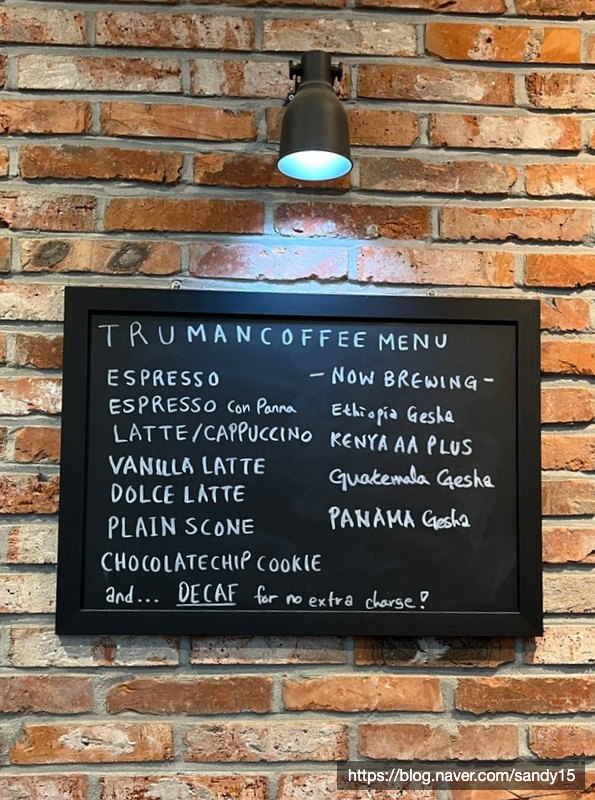 TRUMANCOFFEE MENU
ESPRESSO
ESPRESSO con Panna
LATTE/CAPPUCCINO
VANILLA LATTE
DOLCE LATTE
PLAIN SCONE
CHOCOLATECHIP COOKIE
and... DECAF for no extra charge!
- NOW BREWING -
Ethiopia Gesha
KENYA AA PLUS
Guatemala Gesha
PANAMA Gesha
https://blog.naver.com/sandy15